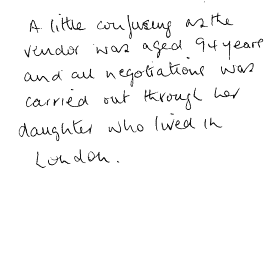 A little confusing as the
vendor was aged 94 years
and all negotiations was
carried out through her
daughter who lived in
London.